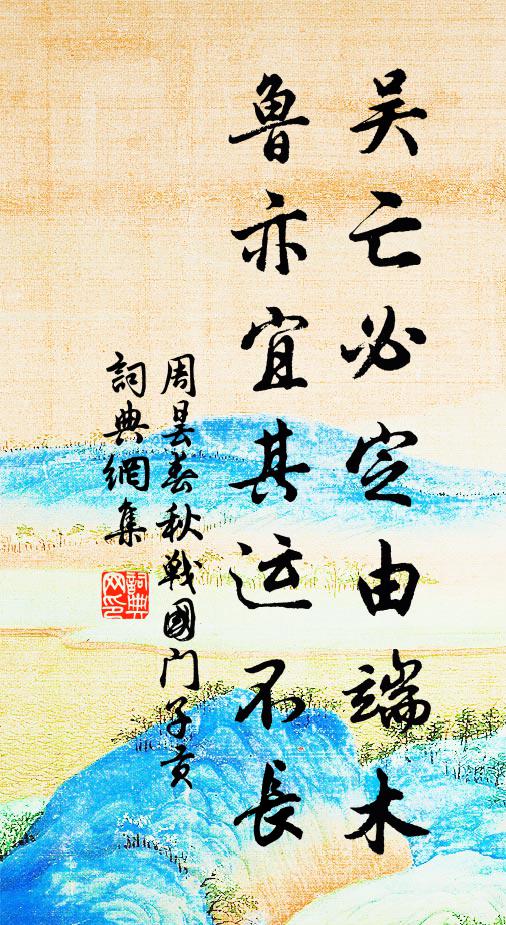 吴亡必定由端木
鲁亦宜其运不长
周昙春秋戦國门子贡
詞典網集
詞典網印